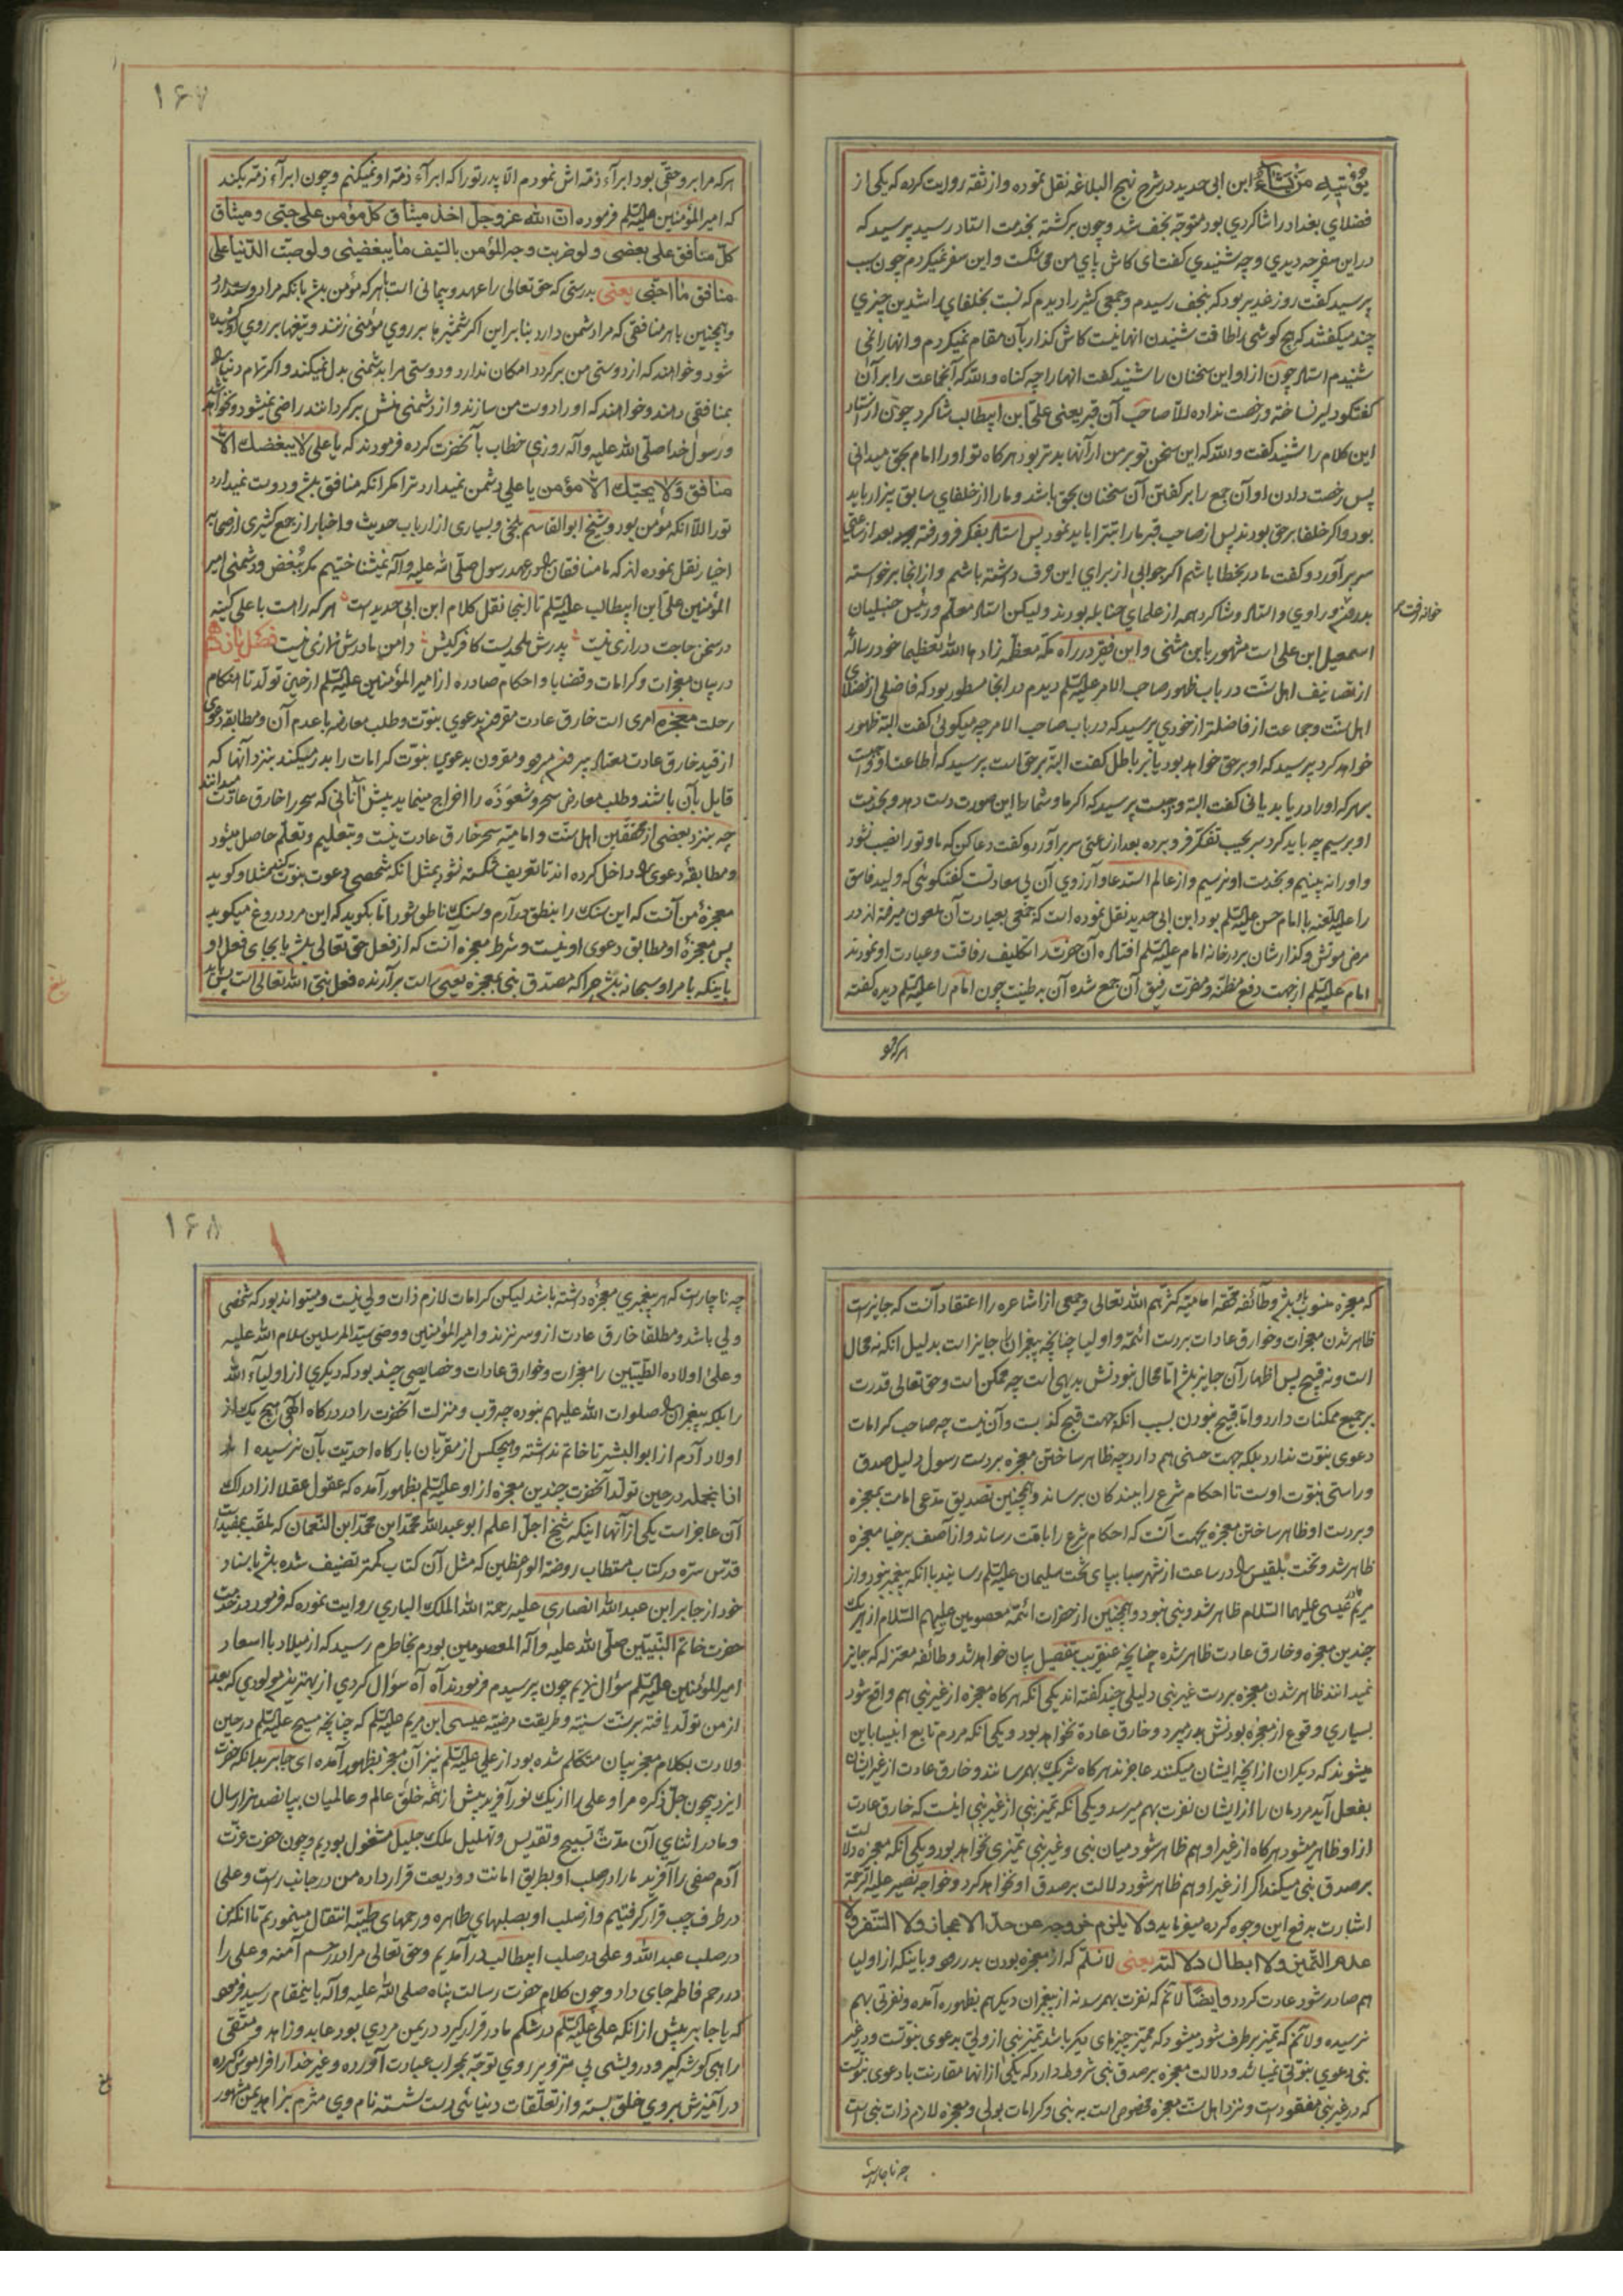 یؤتیه من یشاء ابن ابی حدید در شرح نهج البلاغه نقل نموده و از ثقه روایت کرده که یکی از
فضلای بغداد را شاکردی بود متوجّه نجف شد و چون برکشته بخدمت استاد رسید پرسید که
در این سفر چه دیدی و چه شنیدی کفت ای کاش پای من می شکست و این سفر نمیکردم چون سبب
پرسید کفت روز غدیر بود که بنجف رسیدم و جمعی کثیر را دیدم که نسبت بخلفای راشدین چیزی
چند میکفتند که هیچ کوشی را طاقت شنیدن انها نیست کاش کذار بآن مقام نمیکردم و انها را نمی
شنیدم استاد چون از او این سخنان را شنید کفت انها را چه کناه والله که آنجماعت را بر آن
کفتکو دلیر نساخته و رخصت نداده الّا صاحب آن قبر یعنی علی ابن ابیطالب شاکرد چون از استاد
این کلام را شنید کفت والله که این سخن تو بر من از آنها بدتر بود هرکاه تو او را امام بحق میدانی
پس رخصت دادن او آن جمع را بر کفتن آن سخنان بحق باشد و ما را از خلفای سابق بیزار باید
بود و اکر خلفا بر حق بودند پس از صاحب قبر ما را تبرّا باید نمود پس استاد بفکر فرو رفته بعد از ساعتی
سر برآورد و کفت مادر بخطا باشم اکر جوابی از برای این حرف داشته باشم و از انجا برخواسته
بدرون خانه رفت و راوی و استاد و شاکرد همه از علمای حنابله بودند و لیکن استاد معلّم و رئیس حنبلیان
اسمعیل ابن علی است مشهور بابن مثنی و این فقیر در راه مکّه معظّمه زادها الله تعظیما خود رسالۀ
از تصانیف اهل سنّت در باب ظهور صاحب الامر علیه السّلم دیدم در انجا مسطور بود که فاضلی از فضلای
اهل سنّت و جماعت از فاضلتر از خودی پرسید که در باب صاحب الامر چه میکوئی کفت البتّه ظهور
خواهد کرد پرسید که او بر حق خواهد بود یا بر باطل کفت البتّه بر حق است پرسید که اطاعت او واجبست
بهر که او را دریابد یا نی کفت البتّه واجبست پرسید که اکر ما و شما را این صورت دست دهد و بخدمت
او برسیم چه باید کرد سر بجیب تفکّر فرو برده بعد از ساعتی سر برآورد و کفت دعا کن که ما و تو را نصیب نشود
و او را نه بینیم و بخدمت او نرسیم و از عالم استدعا و آرزوی آن بی سعادتست کفتکوئی که ولید فاسق
را علیه اللّعنه با امام حسن علیه السّلم بود ابن ابی حدید نقل نموده است که جمعی بعیادت آن ملعون میرفته اند در
مرض موتش و کذارشان بر در خانه امام علیه السّلم افتاده آن حضرت را تکلیف رفاقت و عیادت او نمودند
امام علیه السّلم از جهت دفع مظنّه و مضرّت رفیق آن جمع شده آن بد طینت چون امام را علیه السّلم دیده کفته
هر که مرا بر او حقّی بود ابراء ذمّه اش نمودم الّا پدر تو را که ابراء ذمّه او نمیکنم و چون ابراء ذمّه بکند
که امیر المؤمنین علیه السّلم فرموده انّ الله عزوجلّ اخذ میثاق کلّ مؤمن علی حبّی و میثاق
کلّ منافق علی بغضی و لو ضربت وجه المؤمن بالسّیف ما یبغضنی و لو صبّت الدّنیا علی
منافق ما احبّنی یعنی بدرستی که حق تعالی را عهد و پیمانی است با هر که مؤمن باشد بانکه مرا دوست دارد
و همچنین با هر منافقی که مرا دشمن دارد بنابراین اکر شمشیرها بر روی مؤمنی زنند و تیغها بر روی او کشیده
شود و خواهند که از دوستی من برکردد امکان ندارد و دوستی مرا بدشمنی بدل نمیکند و اکر تمام دنیا را
بمنافقی دهند و خواهند که او را دوست من سازند و از دشمنی منش برکردانند راضی نمیشود و نخواهد شد
و رسول خدا صلّی الله علیه و آله روزی خطاب بآنحضرت کرده فرمودند که یا علی لا یبغضک الّا
منافق و لا یحبّک الّا مؤمن یا علی دشمن نمیدارد ترا مکر انکه منافق باشد و دوست نمیدارد
تو را الّا انکه مؤمن بود و شیخ ابو القاسم بلخی و بسیاری از ارباب حدیث و اخبار از جمع کثیری از صحابه
اخیار نقل نموده اند که ما منافقان را در عهد رسول صلّی الله علیه و آله نمیشناختیم مکر ببغض و دشمنی امیر
المؤمنین علی ابن ابیطالب علیه السّلم تا اینجا نقل کلام ابن ابی حدید است هر که را هست با علی کینه
در سخن حاجت درازی نیست پدرش ملحدیست کافر کیش دامن مادرش نمازی نیست فصل یازدهم
در بیان معجزات و کرامات و قضایا و احکام صادره از امیر المؤمنین علیه السّلم از حین تولّد تا هنکام
رحلت معجزه امری است خارق عادت مقرون بدعوی نبوّت و طلب معارضه با عدم آن و مطابقه دعوی
از قید خارق عادت معتاد بیرون میرود و مقرون بدعوی نبوّت کرامات را بدر میکند بنزد آنها که
قایل بآن باشند و طلب معارض سحر و شعوَذَه را اخراج مینماید پیش آنانی که سحر را خارق عادت میدانند
چه بنزد بعضی از محقّقین اهل سنّت و امامیّه سحر خارق عادت نیست و بتعلیم و تعلّم حاصل میشود
و مطابقۀ دعوی را داخل کرده اند تا تعریف شکسته نشود بمثل انکه شخصی دعوت نبوّت کند مثلا و کوید
معجزۀ من آنست که این سنک را بنطق درآرم و سنک ناطق شود امّا بکوید که این مرد دروغ میکوید
پس معجزۀ او مطابق دعوی او نیست و شرط معجزه آنست که از فعل حق تعالی باشد یا بجای فعل او
باینکه بامر او سبحانه باشد چرا که مصدّق نبی بمعجزه یعنی است برآرنده فعل نبی الله تعالی است پس باید
هر که مرا
۱۶۷
که معجزه منسوب باو باشد و طائفه محقّه امامیّه کثّرهم الله تعالی و جمعی از اشاعره را اعتقاد آنست که جایز است
ظاهر شدن معجزات و خوارق عادات بر دست ائمّه و اولیا چنانچه پیغبران را جایز است بدلیل انکه نه محال
است و نه قبیح پس اظهار آن جایز باشد امّا محال نبودنش بدیهی است چه ممکن است و حق تعالی قدرت
بر جمیع ممکنات دارد و امّا قبیح نبودن بسبب انکه جهت قبح کذبست و آن نیست چه صاحب کرامات
دعوی نبوّت ندارد بلکه جهت حسنی هم دارد چه ظاهر ساختن معجزه بر دست رسول دلیل صدق
و راستی نبوّت اوست تا احکام شرع را ببندکان برساند و همچنین تصدیق مدّعی امامت بمعجزه
و بر دست او ظاهر ساختن معجزه بجهت آنست که احکام شرع را بامّت رساند و از آصف برخیا معجزه
ظاهر شد و تخت بلقیس را در ساعت از شهر سبا بپای تخت سلیمان علیه السّلم رسانید باانکه پیغمبر نبود و از
مریم مادر عیسی علیهما السّلام ظاهر شد و نبی نبود و همچنین از حضرات ائمّه معصومین علیهم السّلام از هر یک
چندین معجزه و خارق عادت ظاهر شده چنانچه عنقریب بتفصیل بیان خواهد شد و طائفه معتزله که جایز
نمیدانند ظاهر شدن معجزه بر دست غیر نبی دلیلی چند کفته اند یکی انکه هرکاه معجزه از غیر نبی هم واقع شود
بسیاری وقوع از معجزه بودنش بدر میبرد و خارق عادة نخواهد بود و یکی انکه مردم تابع انبیا باین
میشوند که دیکران از انچه ایشان میکنند عاجزند هرکاه شریک بهم رسانند و خارق عادت از غیر ایشان
بفعل آید مردمان را از ایشان نفرت بهم میرسد و یکی انکه تمیز نبی از غیر نبی اینست که خارق عادت
از او ظاهر میشود هرکاه از غیر او هم ظاهر شود میان نبی و غیر نبی تمیزی نخواهد بود و یکی انکه معجزه دلالت
بر صدق نبی میکند اکر از غیر او هم ظاهر شود دلالت بر صدق او نخواهد کرد و خواجه نصیر علیه الرّحمة
اشارت بدفع این وجوه کرده میفرماید و لا یلزم خروجه عن حدّ الاعجاز و لا التنفر و لا
عدم التّمیز و لا ابطال دلالته یعنی لا نسلّم که از معجزه بودن بدر رود باینکه از اولیا
هم صادر شود عادت کردد و ایضًا لا نم که نفرت بهم رسد نه از پیغبران دیکر هم بظهور آمده و نفرتی بهم
نرسیده و لا نم که تمیز برطرف شود میشود که ممیّز چیزهای دیکر باشد تمیز نبی از ولی بدعوی نبوّتست و در غیر
نبی دعوی نبوّتی نمیباشد و دلالت معجزه بر صدق نبی شروط دارد که یکی از انها مقارنت با دعوی نبوّت
که در غیر نبی مفقود است و نزد اهل سنّت معجزه مخصوص است به نبی و کرامات بولی و معجزه لازم ذات نبی است
چه ناچار است
۱۶۸
چه ناچار است که هر پیغمبری معجزه داشته باشد لیکن کرامات لازم ذات ولی نیست و میتواند بود که شخصی
ولی باشد و مطلقا خارق عادت از و سر نزند و امیر المؤمنین و وصی سیّد المرسلین سلام الله علیه
و علی اولاده الطّیبین را معجزات و خوارق عادات و خصایصی چند بود که دیکری از اولیاء الله
را بلکه پیغبران را صلوات الله علیهم نبوده چه قرب و منزلت آنحضرت را در درکاه الهی هیچ یک از
اولاد آدم از ابو البشر تا خاتم نداشته و هیچکس از مقرّبان بارکاه احدیّت بآن نرسیده اند
از انجمله در حین تولّد آنحضرت چندین معجزه از او علیه السّلم بظهور آمده که عقول عقلا از ادراک
آن عاجز است یکی از آنها اینکه شیخ اجلّ اعلم ابو عبد الله محمّد ابن محمّد ابن النّعمان که ملقّب بمفید است
قدّس سرّه در کتاب مستطاب روضة الواعظین که مثل آن کتاب کمتر تصنیف شده باشد باسناد
خود از جابر ابن عبد الله انصاری علیه رحمة الله الملک الباری روایت نموده که فرمود در خدمت
حضرت خاتم النّبیّین صلّی الله علیه و آله المعصومین بودم بخاطرم رسید که از میلاد با اسعاد
امیر المؤمنین علیه السّلم سؤال نمایم چون پرسیدم فرمودند آه آه سؤال کردی از بهترین مولودی که بعد
از من تولّد یافته بر سنّت سنیّه و طریقت مرضیّه عیسی ابن مریم علیه السّلم که چنانچه مسیح علیه السّلم در حین
ولادت بکلام معجز بیان متکلّم شده بود از علی علیه السّلم نیز آن معجز بظهور آمده ای جابر بدانکه حضرت
ایزد بیچون جلّ ذکره مرا و علی را از یک نور آفرید پیش از همه خلق عالم و عالمیان بپانصد هزار سال
و ما در اثنای آن مدّت تسبیح و تقدیس و تهلیل ملک جلیل مشغول بودیم و چون حضرت عزّت
آدم صفی را آفرید ما را در صلب او بطریق امانت و ودیعت قرار داده من در جانب راست و علی
در طرف چپ قرار کرفتیم و از صلب او بصلبهای طاهره و رحمهای طیّبه انتقال مینمودیم تا انکه من
در صلب عبد الله و علی در صلب ابیطالب درآمدیم و حق تعالی مرا در رحم آمنه و علی را
در رحم فاطمه جای داد و چون کلام حضرت رسالت پناه صلی الله علیه و آله باینمقام رسید فرمود
که یا جابر پیش از انکه علی علیه السّلم در شکم مادر قرار کیرد در یمن مردی بود عابد و زاهد و متّقی
راهبی کوشه کیر و درویشی بی مزوّیر روی توجّه بمحراب عبادت آورده و غیر خدا را فراموش کرده
در آمیزش بروی خلق بسته و از تعلّقات دنیائی دست شسته نام وی مثرم بزاهد یمن مشهور